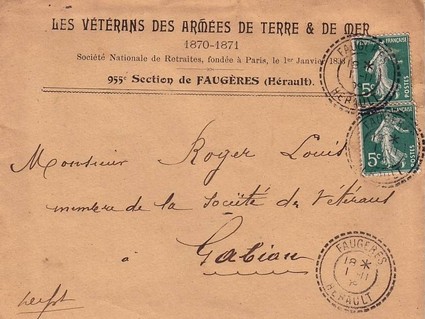 LES VÉTÉRANS DES ARMÉES DE TERRE & DE MER
1870-1871
Société Nationale de Retraites, fondée à Paris, le 1er Janvier
955e Section de FAUGÈRES (Hérault).
FRANÇAISE
5c
POSTES
5c
POSTES
FAUGERES
18 *
1 - 11
HERAULT
Monsieur Roger Louis
membre de la Société du Vétérans
à Gabian